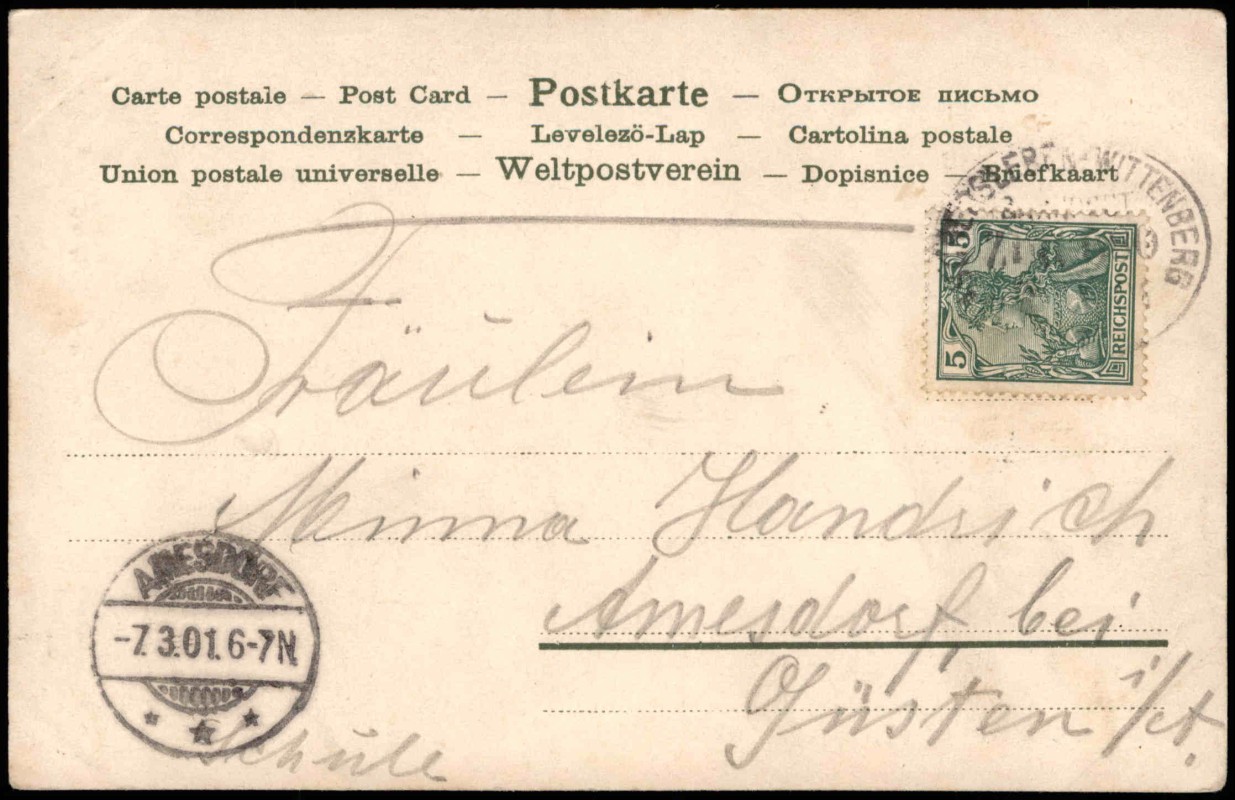 Carte postale — Post Card — Postkarte — Открытое письмо
Correspondenzkarte — Levelezö-Lap — Cartolina postale
Union postale universelle — Weltpostverein — Dopisnice — Briefkaart
WITTENBERG
5 5
REICHSPOST
Fräulein
Minna Handrich
Amesdorf bei
Güsten i/A.
Schule
AMESDORF
-7.3.01.6-7N.